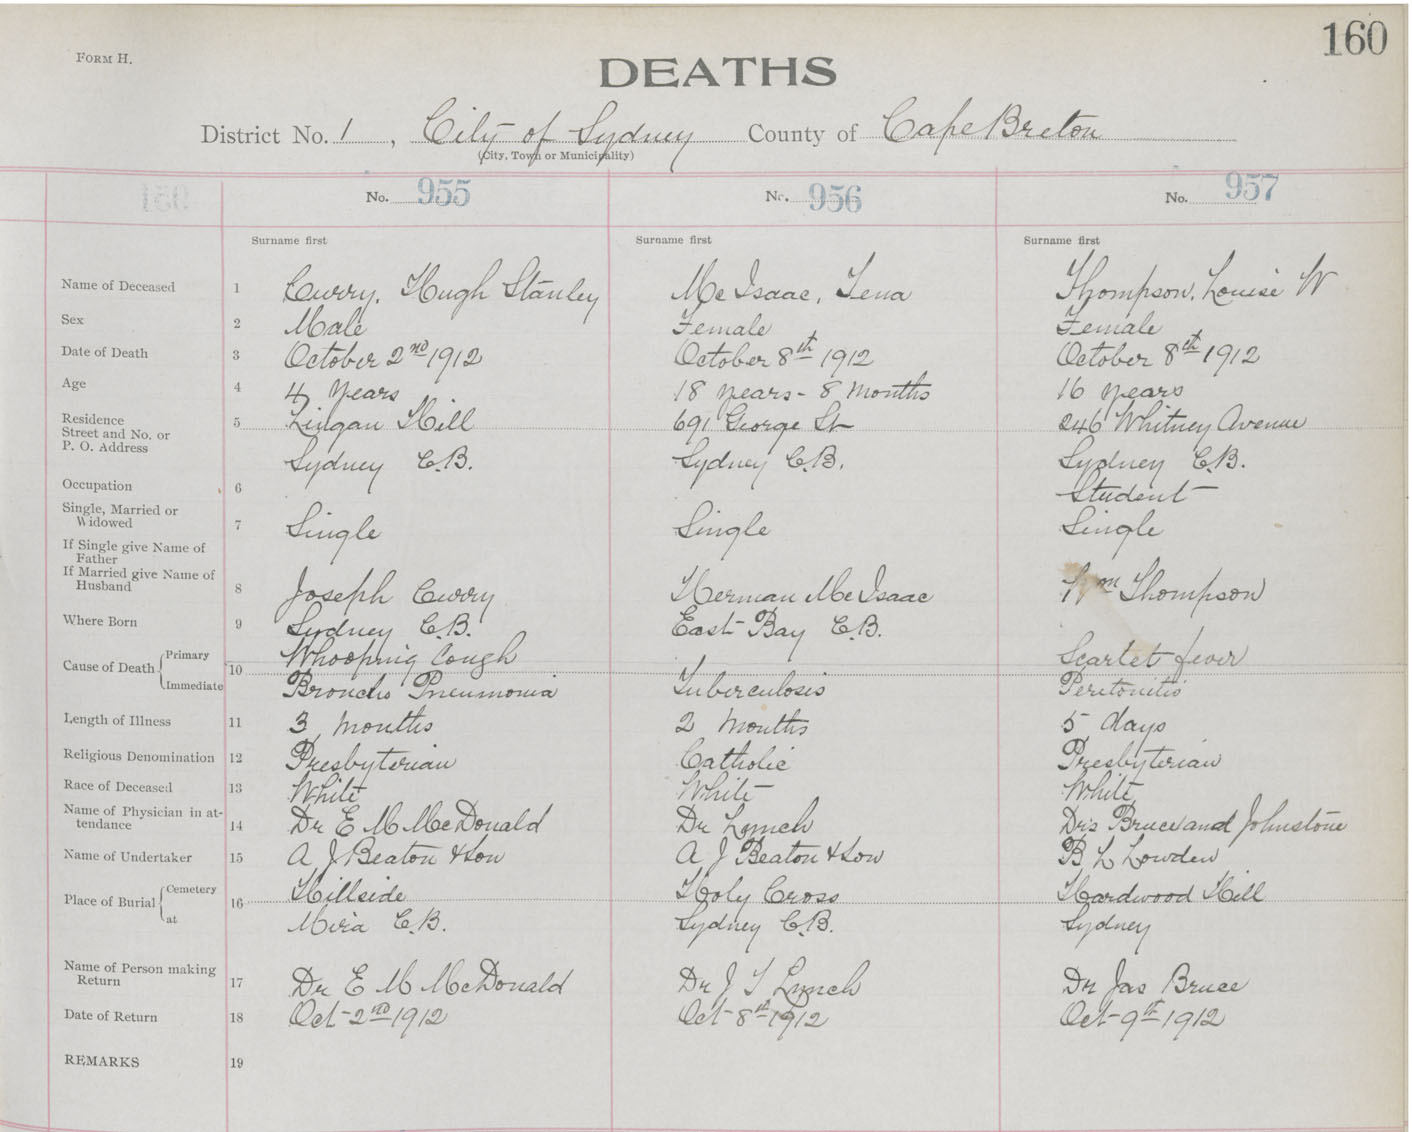 160
FORM H.
DEATHS
District No. 1, City of Sydney County of Cape Breton
(City, Town or Municipality)
No. 955 No. 956 No. 957
Surname first Surname first Surname first
Name of Deceased 1 Curry, Hugh Stanley McIsaac, Tena Thompson, Louise W
Sex 2 Male Female Female
Date of Death 3 October 2nd 1912 October 8th 1912 October 8th 1912
Age 4 4 years 18 years - 8 Months 16 years
Residence
Street and No. or 5 Lingan Hill 691 George St 246 Whitney Avenue
P. O. Address
Sydney C.B. Sydney C.B. Sydney C.B.
Occupation 6 Student
Single, Married or
Widowed 7 Single Single Single
If Single give Name of
Father
If Married give Name of
Husband 8 Joseph Curry Herman McIsaac Wm Thompson
Where Born 9 Sydney C.B. East Bay C.B.
Primary Whooping Cough Scarlet fever
Cause of Death 10
Immediate Broncho Pneumonia Tuberculosis Peritonitis
Length of Illness 11 3 months 2 Months 5 days
Religious Denomination 12 Presbyterian Catholic Presbyterian
Race of Deceased 13 White White White
Name of Physician in at-
tendance 14 Dr E M McDonald Dr Lynch Drs Bruce and Johnstone
Name of Undertaker 15 A J Beaton & Son A J Beaton & Son B L Lowden
Cemetery Hillside Holy Cross Hardwood Hill
Place of Burial 16
at Mira C.B. Sydney C.B. Sydney
Name of Person making
Return 17 Dr E M McDonald Dr J S Lynch Dr Jas Bruce
Date of Return 18 Oct 2nd 1912 Oct 8th 1912 Oct 9th 1912
REMARKS 19